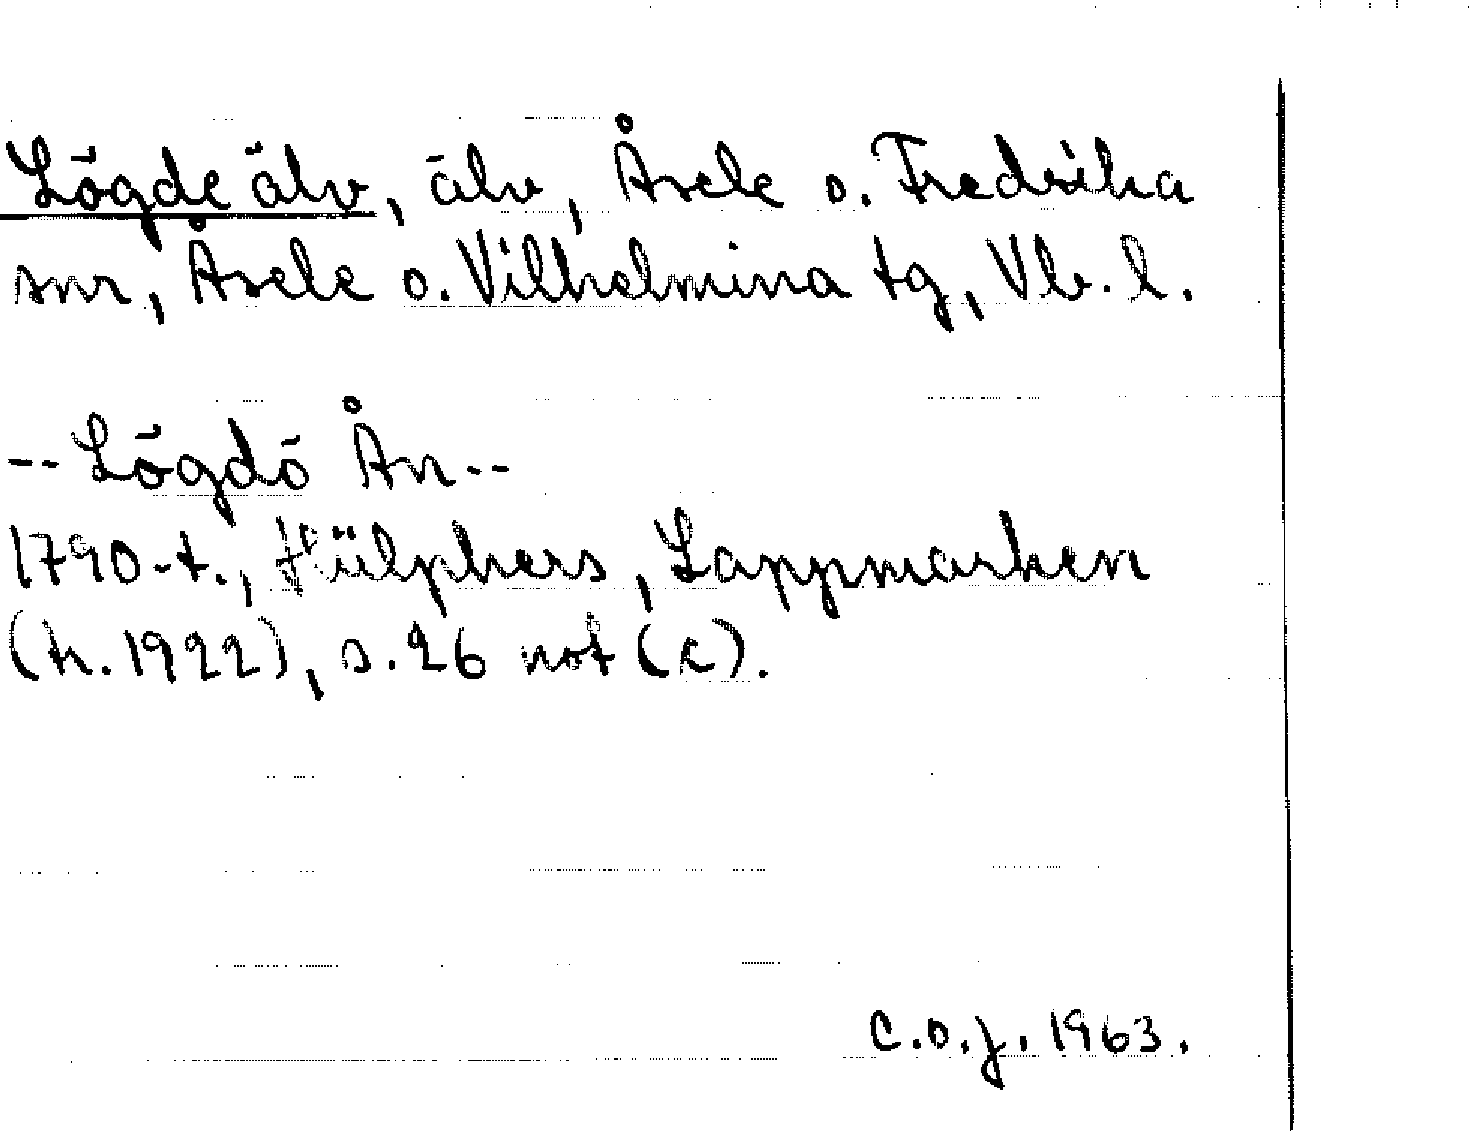 Lögde älv, älv, Åsele o. Fredrika
snr, Åsele o. Vilhelmina tg, Vb. l.
-- Lögdö Ån --
1790-t., Hülphers, Lappmarken
(tr. 1922), s. 26 not (c).
C.O.J. 1963.